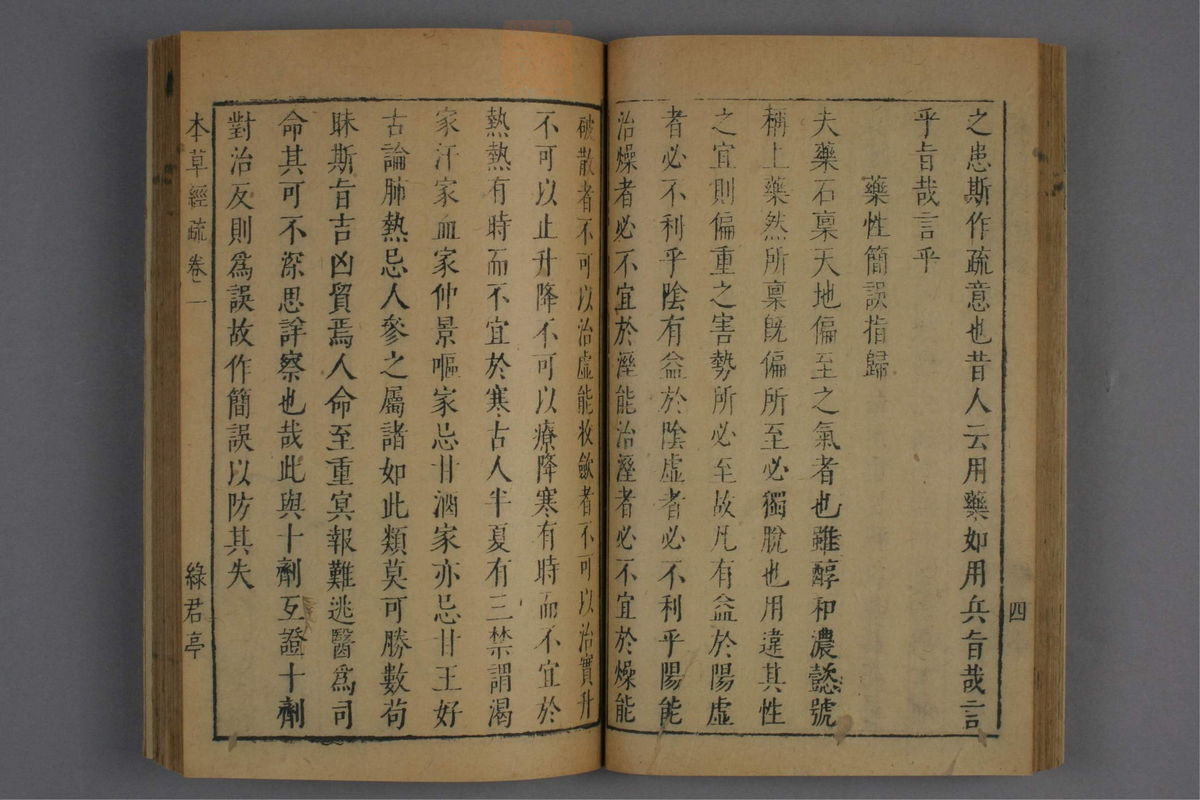 四
之患斯作疏意也昔人云用藥如用兵旨哉言
乎旨哉言乎
藥性簡誤指歸
夫藥石稟天地偏至之氣者也雖醇和濃懿號
稱上藥然所稟旣偏所至必獨脫也用違其性
之宜則偏重之害勢所必至故凡有益於陽虛
者必不利乎陰有益於陰虛者必不利乎陽能
治燥者必不宜於溼能治溼者必不宜於燥能
破散者不可以治虛能收斂者不可以治實升
不可以止升降不可以療降寒有時而不宜於
熱熱有時而不宜於寒古人半夏有三禁謂渴
家汗家血家仲景嘔家忌甘酒家亦忌甘王好
古論肺熱忌人參之屬諸如此類莫可勝數苟
昧斯旨吉凶貿焉人命至重冥報難逃醫爲司
命其可不深思詳察也哉此與十劑互證十劑
對治反則爲誤故作簡誤以防其失
本草經疏 卷一
綠君亭